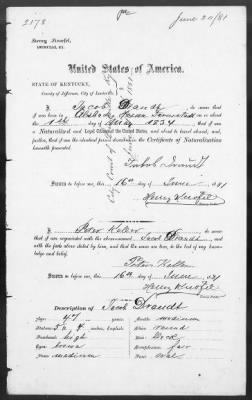 2178
June 20/81
Henry Knoefel,
LOUISVILLE, KY.
United States of America.
STATE OF KENTUCKY,
County of Jefferson, City of Louisville
I, Jacob Brandt, do swear that
was born in
on or about
the 1st day of 1834 that I am
a Naturalized and Legal Citizen of the United States, and about to travel abroad, and,
further, that I am the identical person described in the Certificate of Naturalization
herewith presented.
Jakob Brandt
SWORN to before me, this 16th day of June 1881
Henry Knoefel
I, Peter Keller do swear
that I am acquainted with the above-named Jacob Brandt and
with the facts above stated by him, and that the same are true, to the best of my know-
ledge and belief.
Peter Keller
SWORN to before me, this 16th day of June 1881
Henry Knoefel
Description of Jacob Brandt
Age: 47 years. Mouth: medium
Stature: 5 ft. inches, English. Chin: round
Forehead: high Hair:
Eyes: Complexion: fair
Nose: medium Face: oval